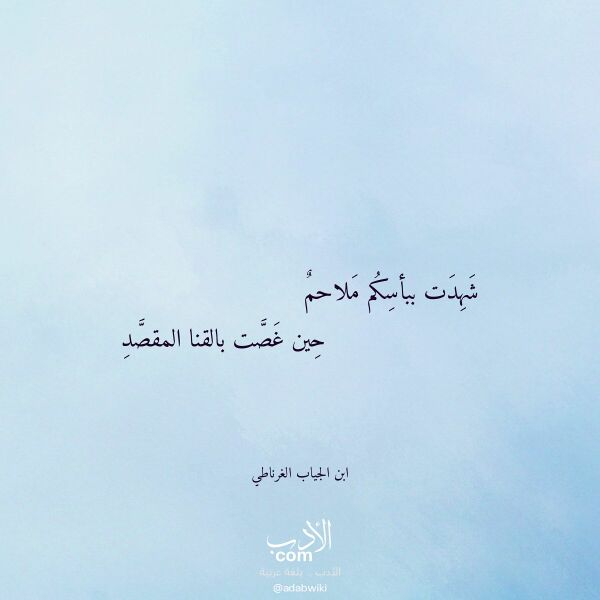 شَهِدَت ببأسِكُم مَلاحمٌ
حِين غَصَّت بالقنا المقصَّدِ
ابن الجياب الغرناطي
الأدب
com
الأدب .. بلغة عربية
@adabwiki